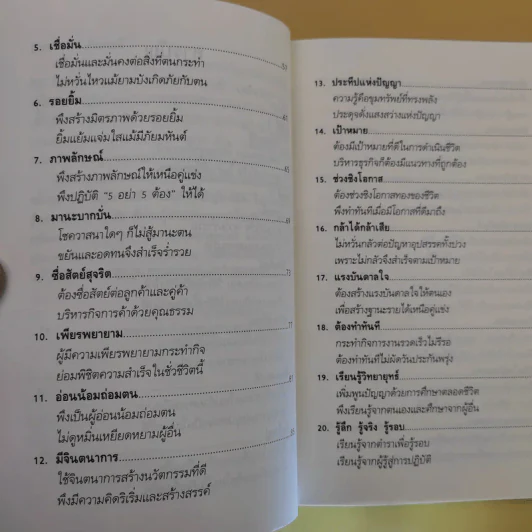 5. เชื่อมั่น
เชื่อมั่นและมั่นคงต่อสิ่งที่ตนกระทำ
ไม่หวั่นไหวแม้ยามบังเกิดภัยกับตน
6. รอยยิ้ม
พึงสร้างมิตรภาพด้วยรอยยิ้ม
ยิ้มแย้มแจ่มใสแม้มีภัยมหันต์
7. ภาพลักษณ์
พึงสร้างภาพลักษณ์ให้เหนือคู่แข่ง
พึงปฏิบัติ "5 อย่า 5 ต้อง" ให้ได้
8. มานะบากบั่น
โชควาสนาใดๆ ก็ไม่สู้มานะตน
ขยันและอดทนจึงสำเร็จร่ำรวย
9. ซื่อสัตย์สุจริต
ต้องซื่อสัตย์ต่อลูกค้าและคู่ค้า
บริหารกิจการค้าด้วยคุณธรรม
10. เพียรพยายาม
ผู้มีความเพียรพยายามกระทำกิจ
ย่อมพิชิตความสำเร็จในชั่วชีวิตนี้
11. อ่อนน้อมถ่อมตน
พึงเป็นผู้อ่อนน้อมถ่อมตน
ไม่ดูหมิ่นเหยียดหยามผู้อื่น
12. มีจินตนาการ
ใช้จินตนาการสร้างนวัตกรรมที่ดี
พึงมีความคิดริเริ่มและสร้างสรรค์
13. ประทีปแห่งปัญญา
ความรู้คือขุมทรัพย์ที่ทรงพลัง
ประดุจดั่งแสงสว่างแห่งปัญญา
14. เป้าหมาย
ต้องมีเป้าหมายที่ดีในการดำเนินชีวิต
บริหารธุรกิจก็ต้องมีแนวทางที่ถูกต้อง
15. ช่วงชิงโอกาส
ต้องช่วงชิงโอกาสทองของชีวิต
พึงทำทันทีเมื่อมีโอกาสที่ดีมาถึง
16. กล้าได้กล้าเสีย
ไม่หวั่นกลัวต่อปัญหาอุปสรรคทั้งปวง
เพราะไม่กลัวจึงสำเร็จตามเป้าหมาย
17. แรงบันดาลใจ
ต้องสร้างแรงบันดาลใจให้ตนเอง
เพื่อสร้างฐานะรายได้เหนือคู่แข่ง
18. ต้องทำทันที
กระทำกิจการงานรวดเร็วไม่รีรอ
ต้องทำทันทีไม่ผัดวันประกันพรุ่ง
19. เรียนรู้วิทยายุทธ์
เพิ่มพูนปัญญาด้วยการศึกษาตลอดชีวิต
พึงเรียนรู้จากตนเองและศึกษาจากผู้อื่น
20. รู้ลึก รู้จริง รู้รอบ
เรียนรู้จากตำราเพื่อรู้รอบ
เรียนรู้จากผู้รู้สู่การปฏิบัติ